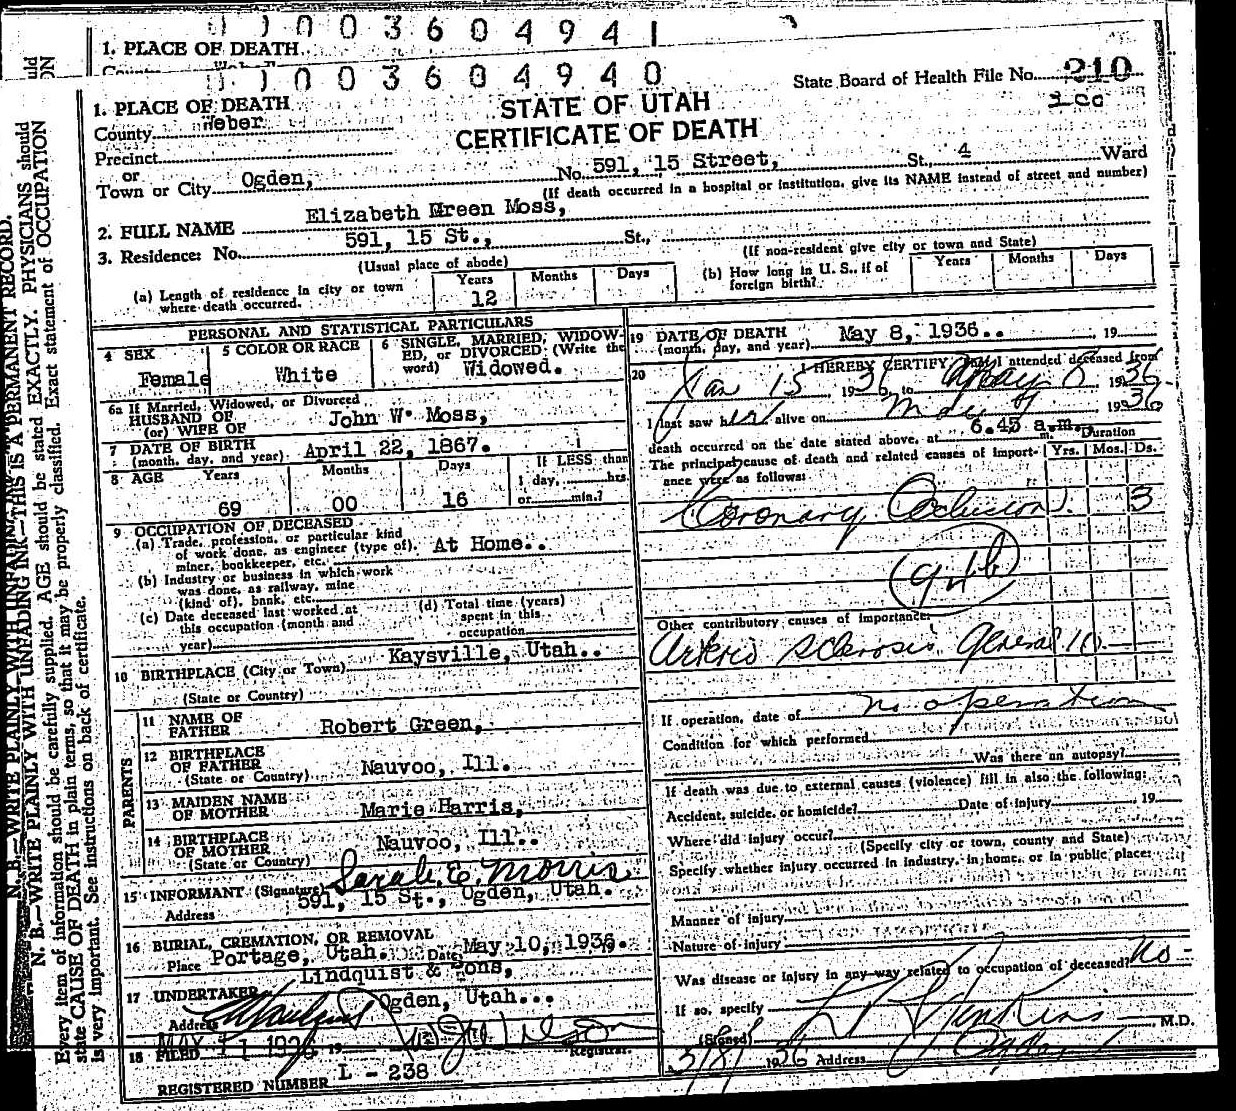 0 0 3 6 0 4 9 4 1
1. PLACE OF DEATH
0 0 3 6 0 4 9 4 0
State Board of Health File No. 210
200
1. PLACE OF DEATH
STATE OF UTAH
County Weber
CERTIFICATE OF DEATH
Precinct
or
Town or City Ogden, No. 591, 15 Street, St., 4 Ward
(If death occurred in a hospital or institution, give its NAME instead of street and number)
2. FULL NAME Elizabeth Green Moss,
3. Residence: No. 591, 15 St., St.,
(Usual place of abode) (If non-resident give city or town and State)
(a) Length of residence in city or town where death occurred. Years 12 Months Days
(b) How long in U. S., if of foreign birth? Years Months Days
PERSONAL AND STATISTICAL PARTICULARS
4 SEX Female
5 COLOR OR RACE White
6 SINGLE, MARRIED, WIDOWED, or DIVORCED: (Write the word) Widowed.
6a If Married, Widowed, or Divorced
HUSBAND OF
(or) WIFE OF John W. Moss,
7 DATE OF BIRTH
(month, day, and year) April 22, 1867.
8 AGE Years 69 Months 00 Days 16
If LESS than
1 day, hrs.
or min.?
9 OCCUPATION OF DECEASED
(a) Trade, profession, or particular kind
of work done, as engineer (type of), At Home..
miner, bookkeeper, etc.
(b) Industry or business in which work
was done, as railway, mine
(kind of), bank, etc.
(c) Date deceased last worked at
this occupation (month and
year)
(d) Total time (years)
spent in this
occupation
10 BIRTHPLACE (City or Town) Kaysville, Utah..
(State or Country)
PARENTS
11 NAME OF
FATHER Robert Green,
12 BIRTHPLACE
OF FATHER Nauvoo, Ill.
(State or Country)
13 MAIDEN NAME
OF MOTHER Marie Harris,
14 BIRTHPLACE
OF MOTHER Nauvoo, Ill..
(State or Country)
15 INFORMANT (Signature) Sarah E. Morris
Address 591, 15 St., Ogden, Utah.
16 BURIAL, CREMATION, OR REMOVAL
Place Portage, Utah. Date May 10, 1936.
17 UNDERTAKER Lindquist & Sons,
Address Ogden, Utah...
18 FILED MAY 11 1936 19
Registrar.
REGISTERED NUMBER L - 238
19 DATE OF DEATH
(month, day, and year) May 8, 1936.. 19
20 I HEREBY CERTIFY, That I attended deceased from
Jan 15, 1936, to May 8 1936
I last saw her alive on May 8 1936
death occurred on the date stated above, at 6.45 a.m. m.
The principal cause of death and related causes of importance were as follows:
Duration
Yrs. Mos. Ds.
Coronary Occlusion 3
94b
Other contributory causes of importance:
Arterio Sclerosis General 10
If operation, date of no operation
Condition for which performed
Was there an autopsy?
If death was due to external causes (violence) fill in also the following:
Accident, suicide, or homicide? Date of injury 19
Where did injury occur?
(Specify city or town, county and State)
Specify whether injury occurred in industry, in home, or in public place:
Manner of injury
Nature of injury
Was disease or injury in any way related to occupation of deceased? No
If so, specify
(Signed) Jenkins M.D.
1936 Address Ogden
N. B.—WRITE PLAINLY WITH UNFADING INK—THIS IS A PERMANENT RECORD.
Every item of information should be carefully supplied. AGE should be stated EXACTLY. PHYSICIANS should
state CAUSE OF DEATH in plain terms, so that it may be properly classified. Exact statement of OCCUPATION
is very important. See instructions on back of certificate.